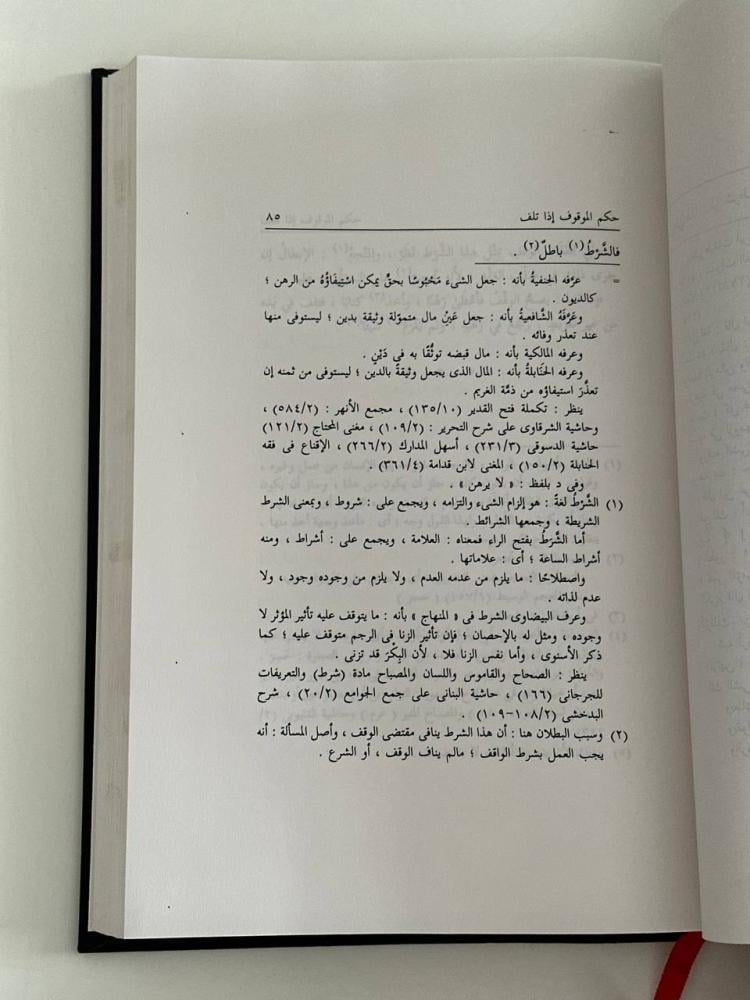 حكم الموقوف إذا تلف ٨٥
فالشَّرْطُ(١) باطلٌ(٢) .
= عرَّفه الحنفيةُ بأنه : جعل الشىء مَحْبُوسًا بحقٍّ يمكن اسْتِيفَاؤُهُ من الرهن ؛
كالديون .
وعَرَّفَهُ الشَّافعيةُ بأنه : جعل عَيْنِ مال متموّلة وثيقة بدين ؛ ليستوفى منها
عند تعذر وفائه .
وعرفه المالكية بأنه : مال قبضه توثُّقًا به فى دَيْنٍ .
وعرفه الحَنَابلةُ بأنه : المال الذى يجعل وثيقةً بالدين ؛ ليستوفى من ثمنه إن
تعذَّرَ استيفاؤه من ذمَّة الغريم .
ينظر : تكملة فتح القدير (١٣٥/١٠) ، مجمع الأنهر : (٥٨٤/٢) ،
وحاشية الشرقاوى على شرح التحرير : (١٠٩/٢) ، مغنى المحتاج (١٢١/٢)
حاشية الدسوقى (٢٣١/٣) ، أسهل المدارك (٢٦٦/٢) ، الإقناع فى فقه
الحنابلة (١٥٠/٢) ، المغنى لابن قدامة (٣٦١/٤) .
وفى د بلفظ : « لا يرهن » .
(١) الشَّرْطُ لغةً : هو إلزام الشىء والتزامه ، ويجمع على : شروط ، وبمعنى الشرط
الشريطة ، وجمعها الشرائط .
أما الشَّرَطُ بفتح الراء فمعناه : العلامة ، ويجمع على : أشراط ، ومنه
أشراط الساعة ؛ أى : علاماتها .
واصطلاحًا : ما يلزم من عدمه العدم ، ولا يلزم من وجوده وجود ، ولا
عدم لذاته .
وعرف البيضاوى الشرط فى « المنهاج » بأنه : ما يتوقف عليه تأثير المؤثر لا
وجوده ، ومثل له بالإحصان ؛ فإن تأثير الزنا فى الرجم متوقف عليه ؛ كما
ذكر الأسنوى ، وأما نفس الزنا فلا ، لأن البِكْرَ قد تزنى .
ينظر : الصحاح والقاموس واللسان والمصباح مادة (شرط) والتعريفات
للجرجانى (١٦٦) ، حاشية البنانى على جمع الجوامع (٢٠/٢) ، شرح
البدخشى (١٠٨/٢-١٠٩) .
(٢) وسبب البطلان هنا : أن هذا الشرط ينافى مقتضى الوقف ، وأصل المسألة : أنه
يجب العمل بشرط الواقف ؛ مالم يناف الوقف ، أو الشرع .